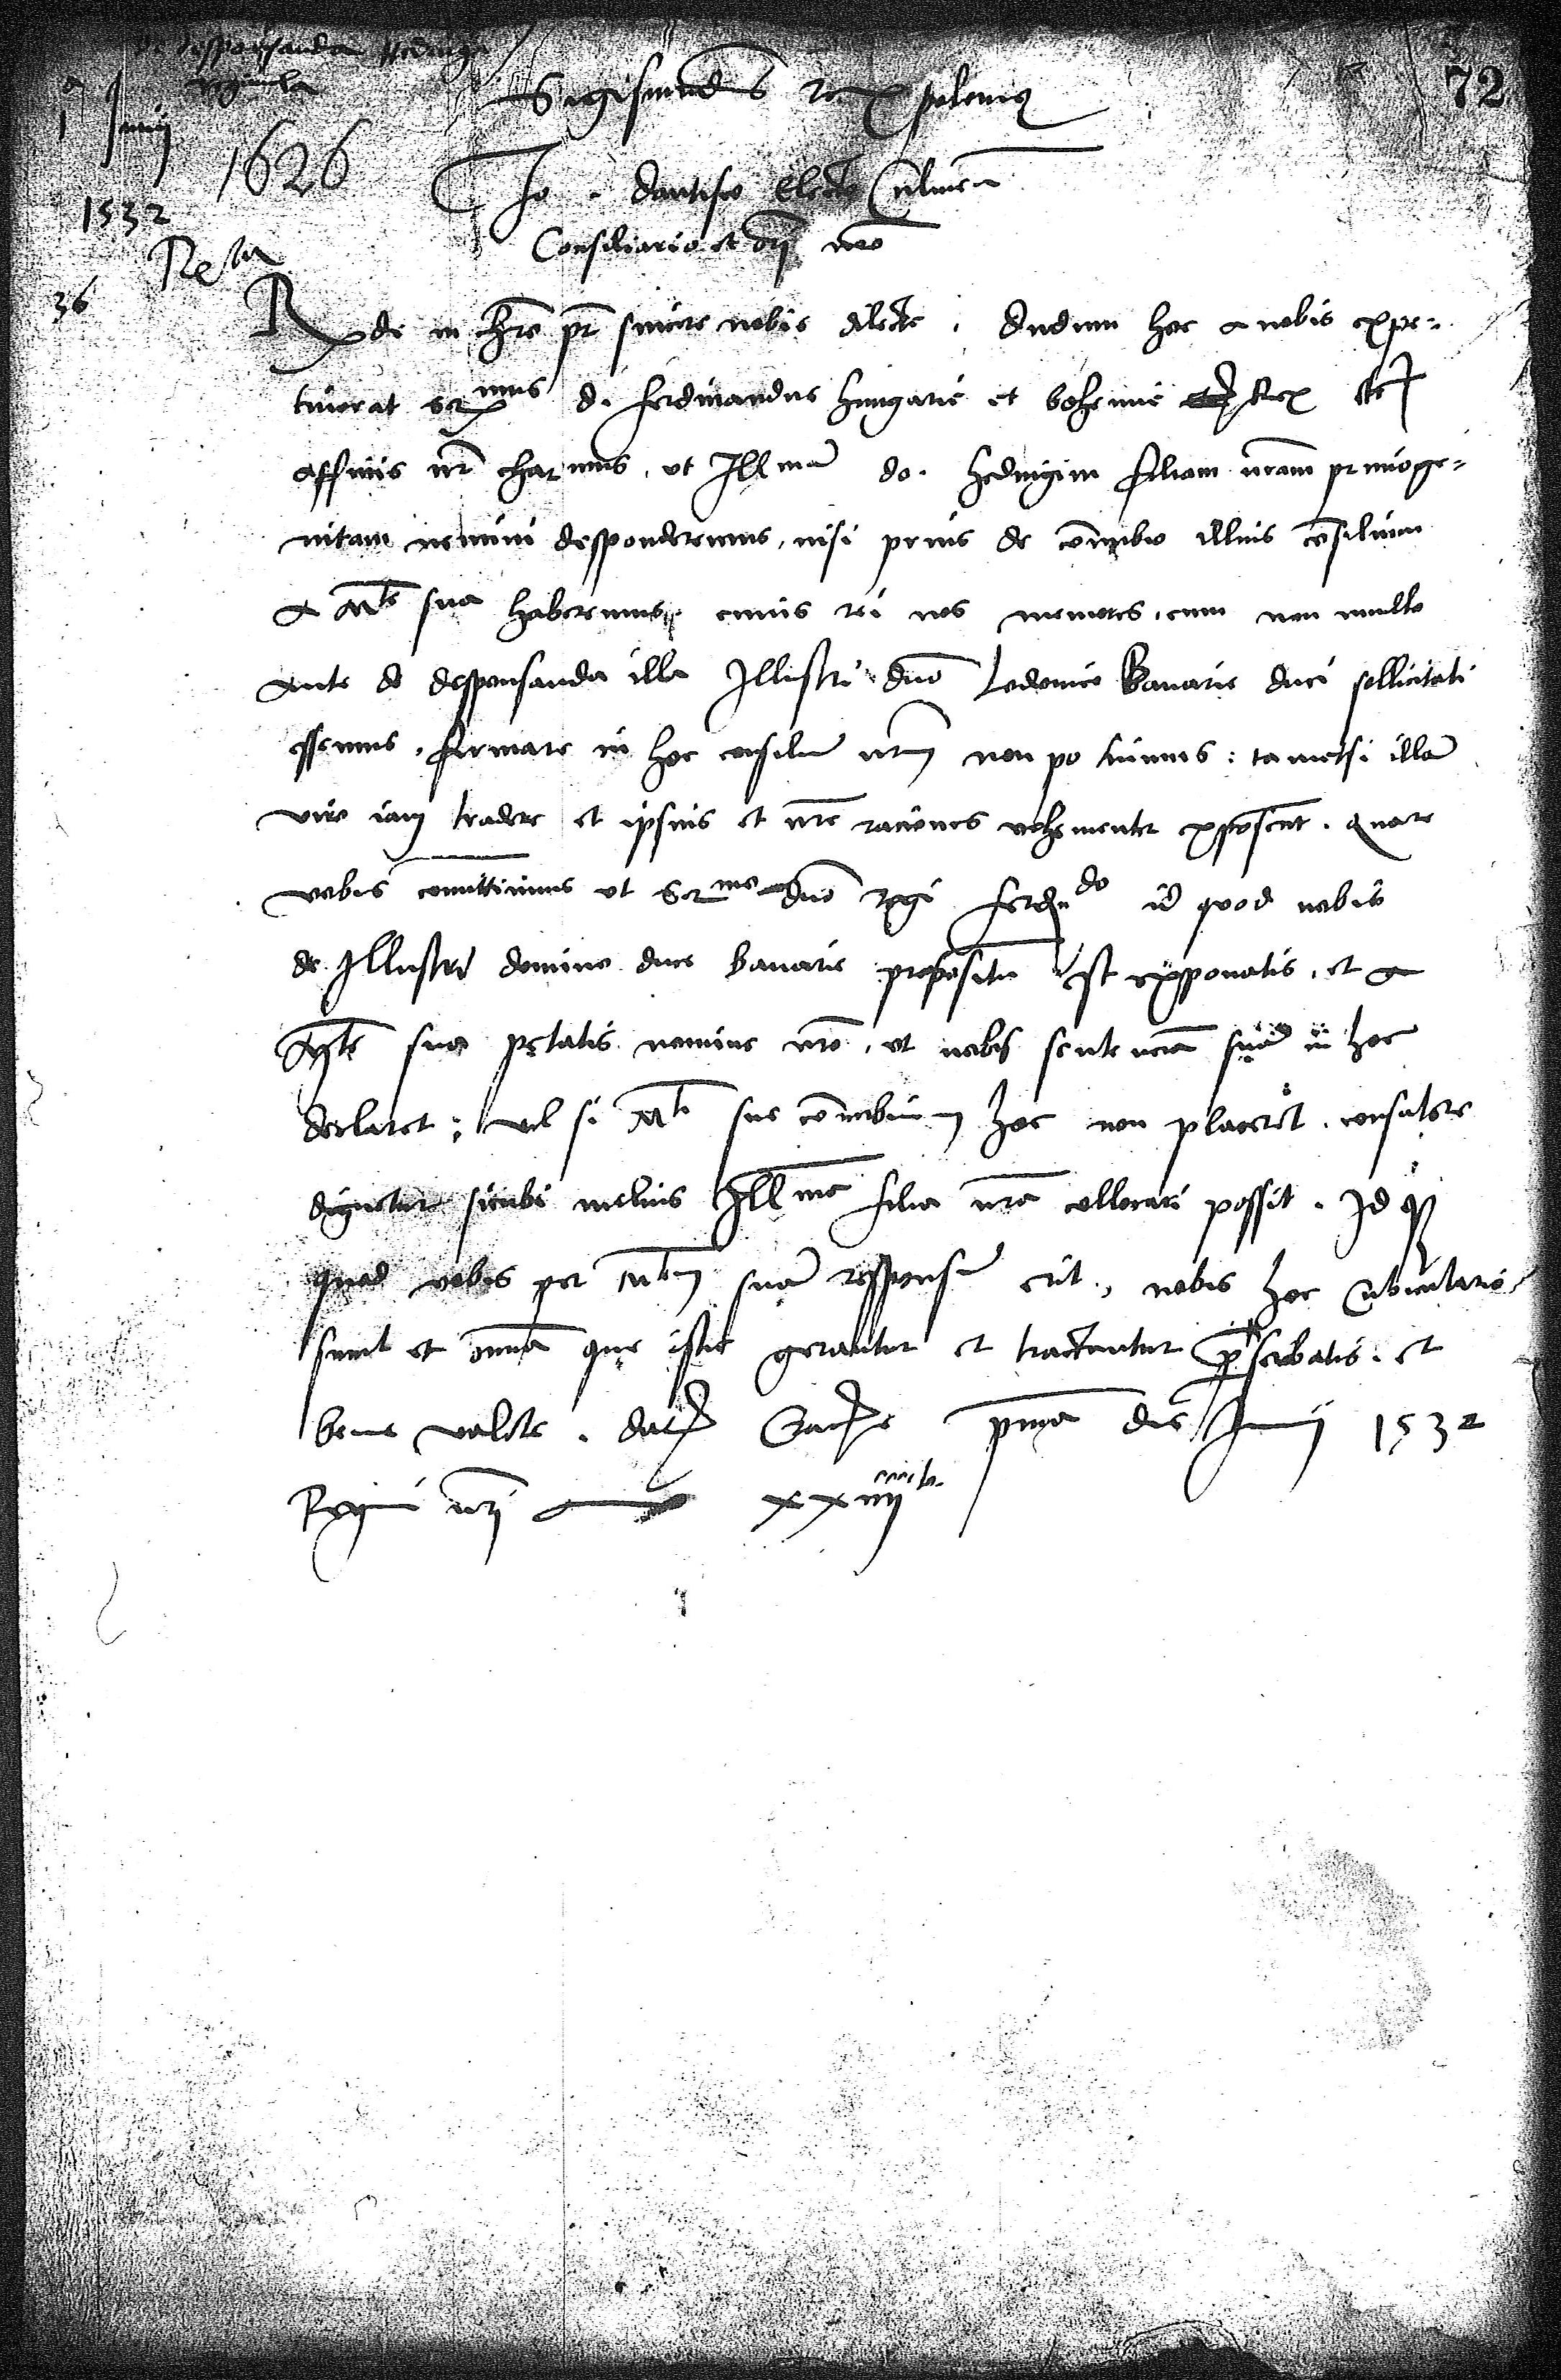 de desponsanda Hedwige
reginula
72
1 Junij
1626
1532
36
Sigismundus rex polonię
Io. dantisco Electo Culmen
Consiliario et orī nr̄o
Rẽta
Rx̄de in chr̄o pr̄ sincere nobis dilecte. Dudum hoc a nobis expe-
tiverat Ser mus d. Ferdinandus Hungarię et bohemię Rex etc
affinis nr̄ char mus, ut Ill mā do. Hedvigim filiam nr̄am primoge-
nitam nemini desponderemus, nisi prius de cōnubio illius cōsilium
a M te sua haberemus, cuius rei nos memores, cum non multo
ante de desponsanda illa Illustri dn̄o Lodovico Bavarię duci sollicitati
essemus, firmare in hoc consiliū nr̄m non potuimus: tametsi illā
viro iam tradere et ipsius et nr̄e raciones vehementer exposcant. quare
vobis com̄ittimus ut Ser mo dn̄o regi Ferdin do id quod nobis
de Illustri domino duce Bavarię propositū est exponatis, et a
M te sua petatis nomine nr̄o, ut nobis sentenciā suā in hoc
declaret; vel si M ti sue cōnubium hoc non placeret, consulere
dignetur sicubi melius Ill ma filia nr̄a collocari possit. Id q3
quod vobis per M tem suā responsū erit, nobis hoc cubiculario
simul et omnia quę istic geruntur et tractentur pscribatis. et
bene valete. dat Crac prima die Junij 1532
Regni nr̄i xxvi